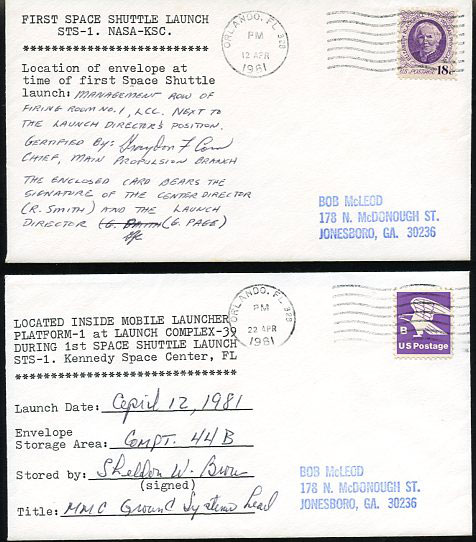 FIRST SPACE SHUTTLE LAUNCH
STS-1. NASA-KSC.
******************************
Location of envelope at
time of first Space Shuttle
launch: MANAGEMENT ROW OF
FIRING ROOM NO. 1, LCC. NEXT TO
THE LAUNCH DIRECTOR'S POSITION.
CERTIFIED BY:
CHIEF, MAIN PROPULSION BRANCH
THE ENCLOSED CARD BEARS THE
SIGNATURE OF THE CENTER DIRECTOR
(R. SMITH) AND THE LAUNCH
DIRECTOR (G. PAGE)
ORLANDO, FL 328
PM
12 APR
1981
US POSTAGE 18c
BOB McLEOD
178 N. McDONOUGH ST.
JONESBORO, GA. 30236
LOCATED INSIDE MOBILE LAUNCHER
PLATFORM-1 at LAUNCH COMPLEX-39
DURING 1st SPACE SHUTTLE LAUNCH
STS-1. Kennedy Space Center, FL
********************************
Launch Date: April 12, 1981
Envelope
Storage Area: COMPT. 44B
Stored by: Sheldon W. Brown
(signed)
Title: MMC Ground Systems Lead
ORLANDO, FL 328
PM
22 APR
1981
B
US Postage
BOB McLEOD
178 N. McDONOUGH ST.
JONESBORO, GA. 30236